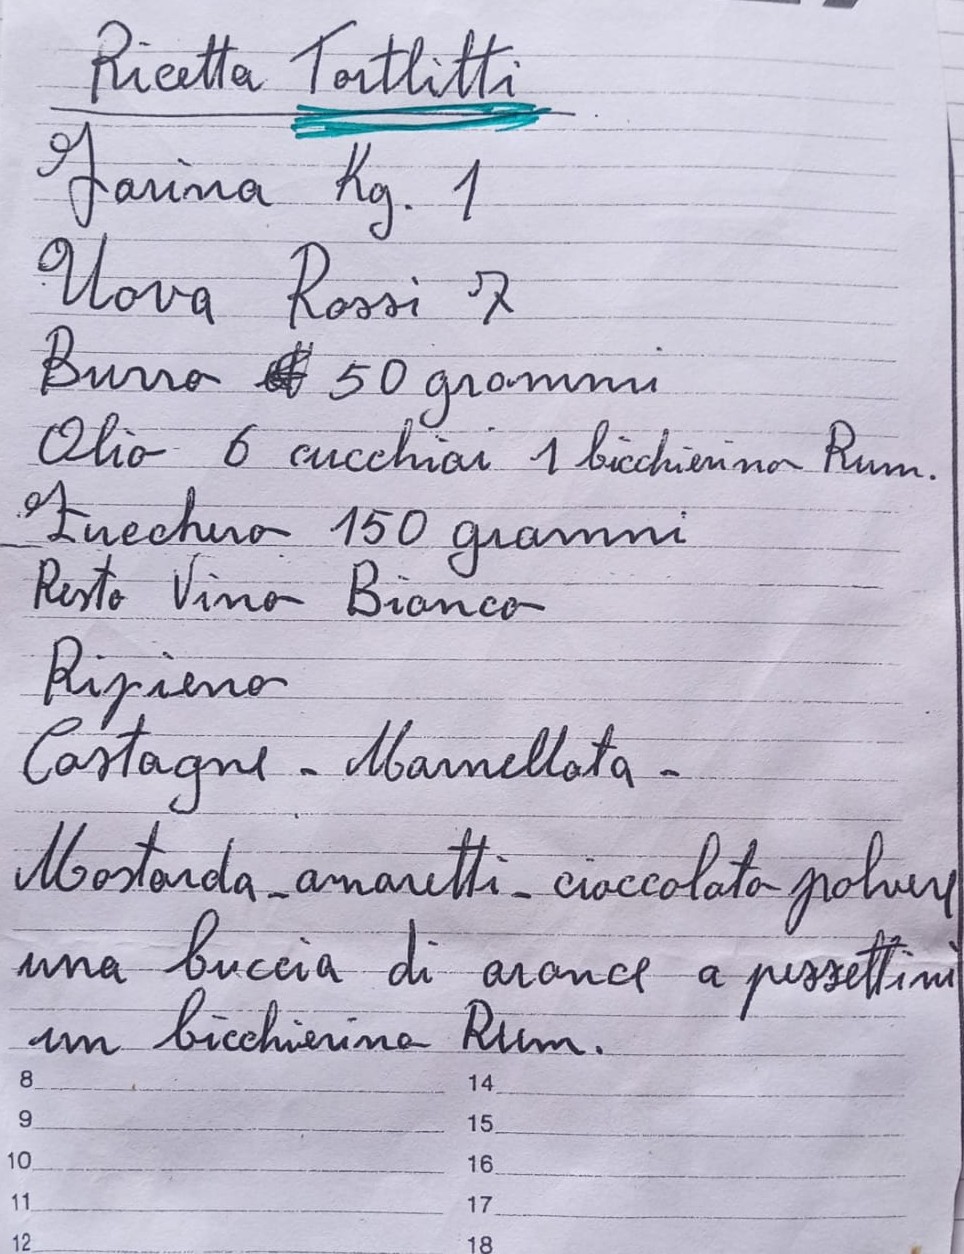 Ricetta Tortlitti
Farina Kg. 1
Uova Rossi 7
Burro 50 grammi
Olio 6 cucchiai 1 bicchierino Rum.
Zucchero 150 grammi
Resto Vino Bianco
Ripieno
Castagne - Marmellata -
Mostarda - amaretti - cioccolato polvere
una buccia di arance a pezzettini
un bicchierino Rum.
8 14
9 15
10 16
11 17
12 18